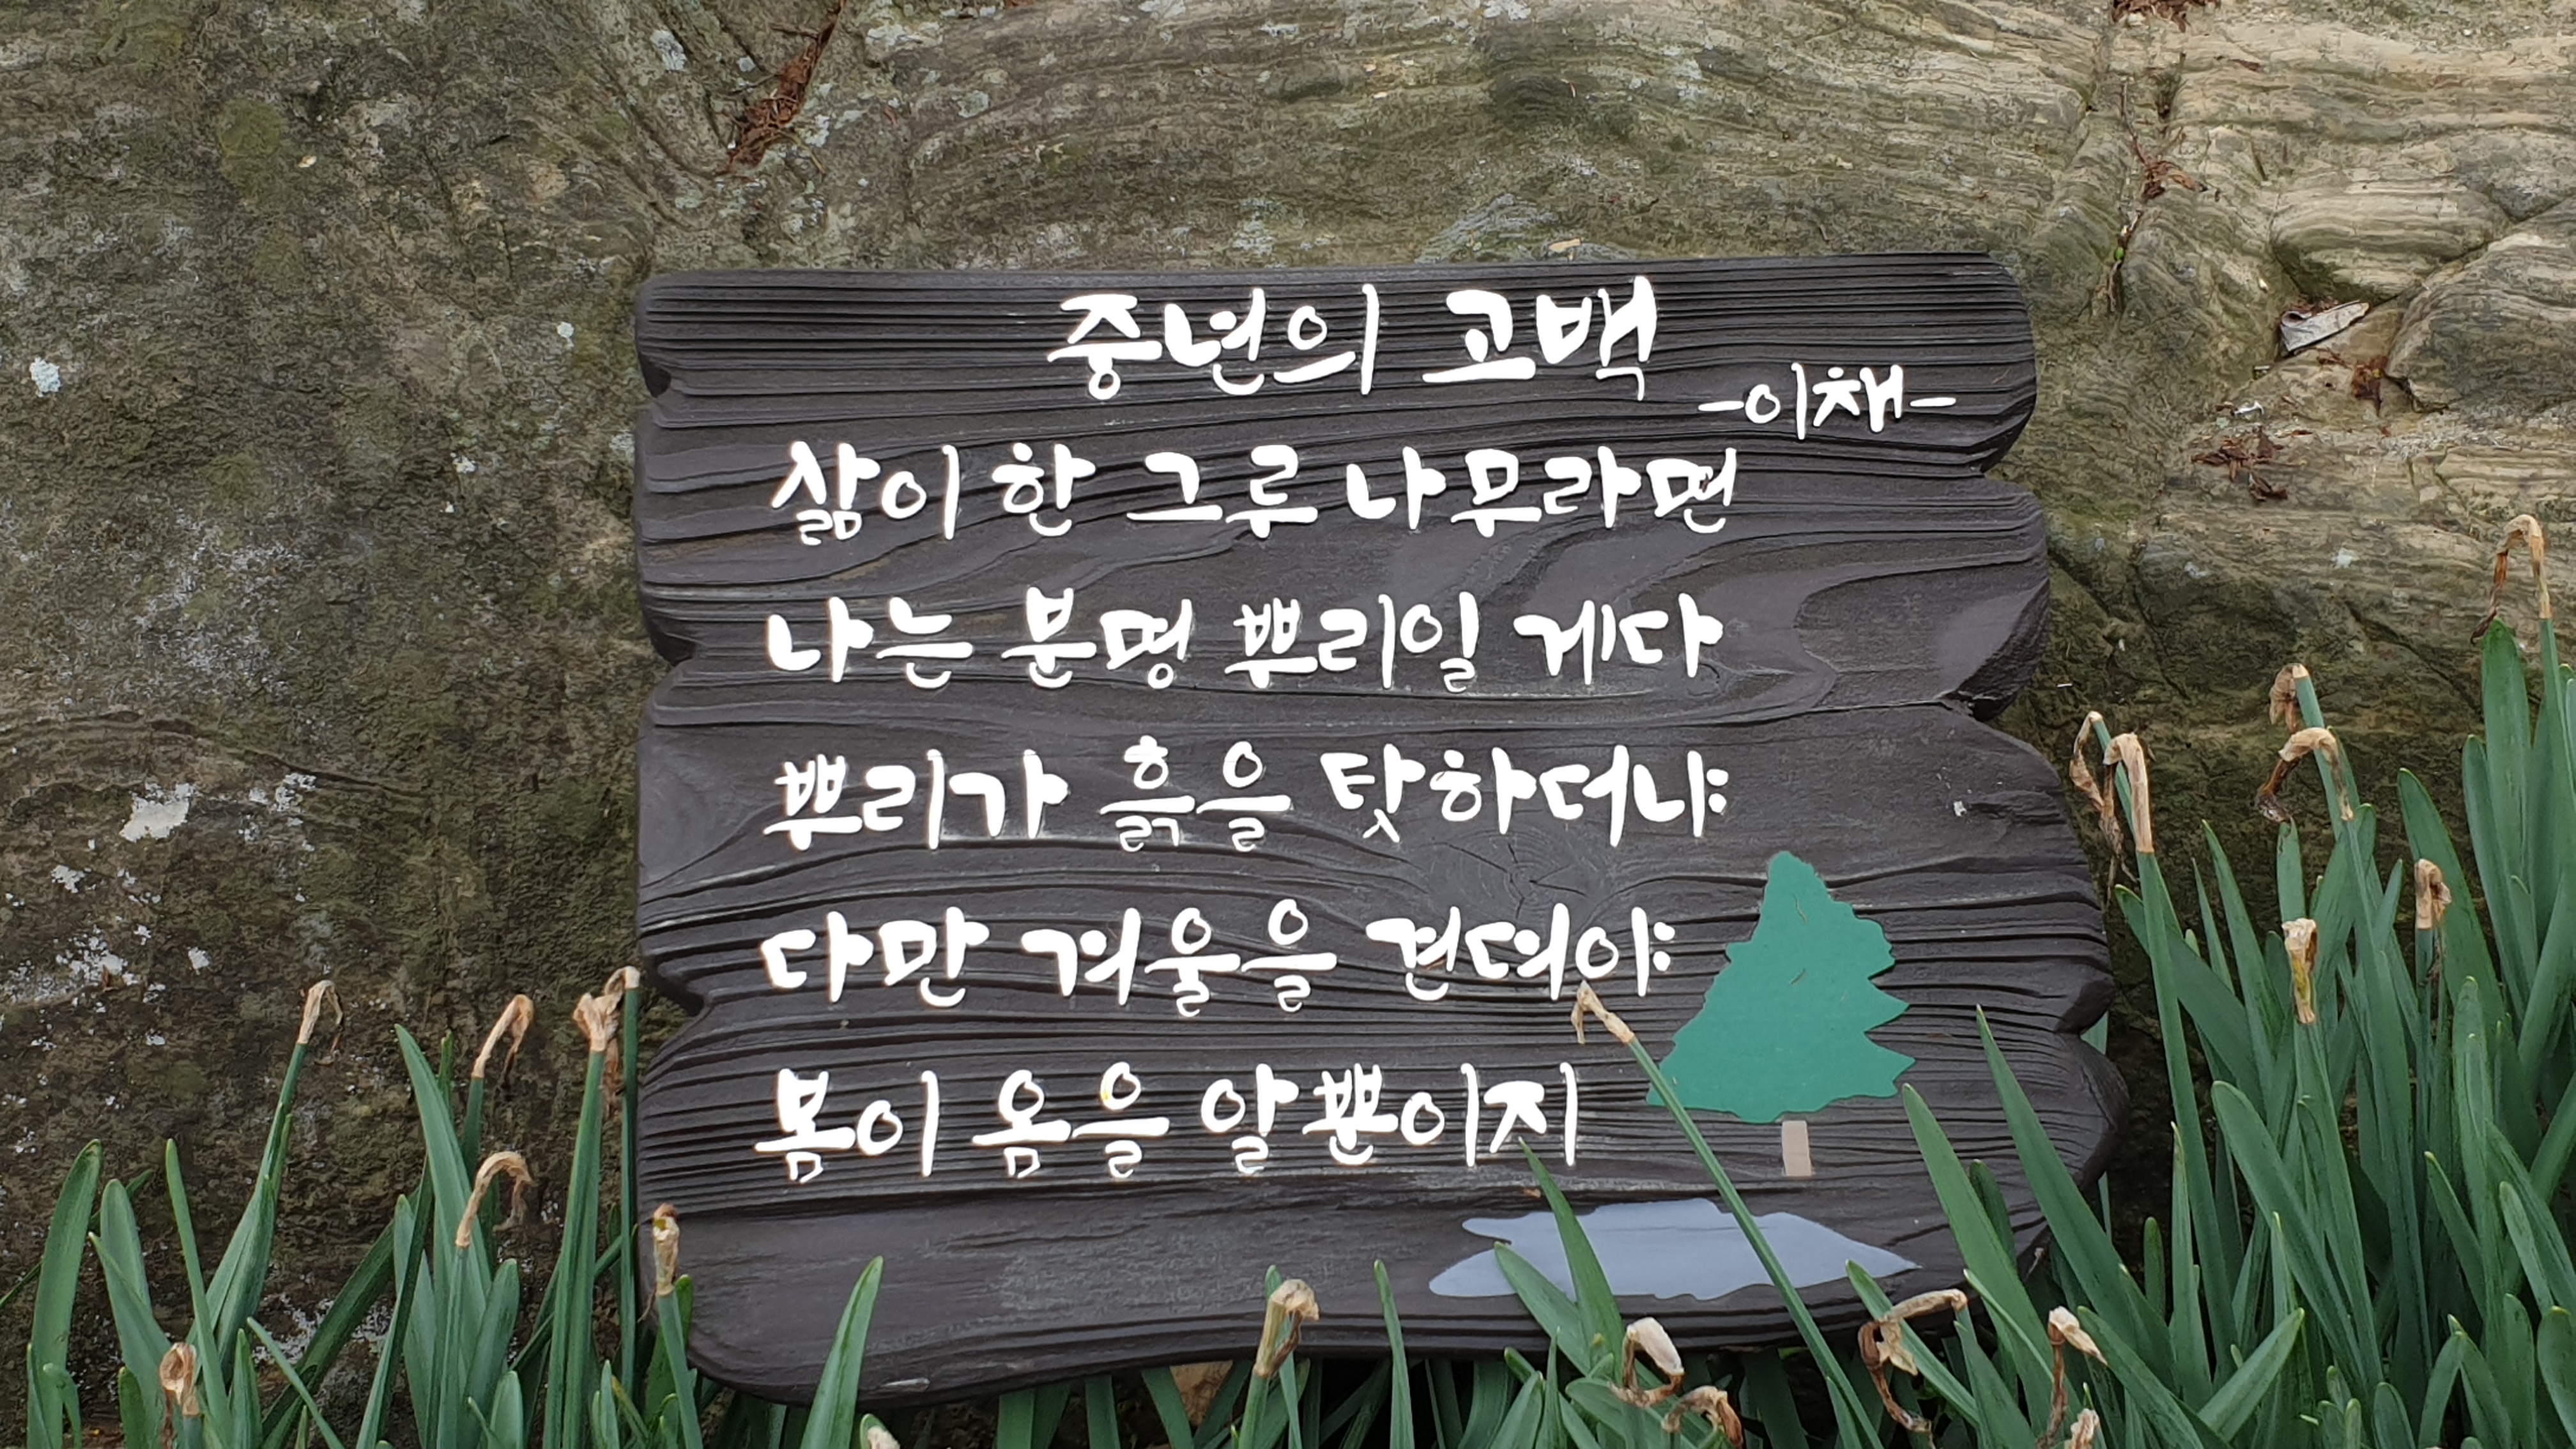 중년의 고백
-이채-
삶이 한 그루 나무라면
나는 분명 뿌리일 게다
뿌리가 흙을 탓하더냐
다만 겨울을 견뎌야
봄이 옴을 알 뿐이지